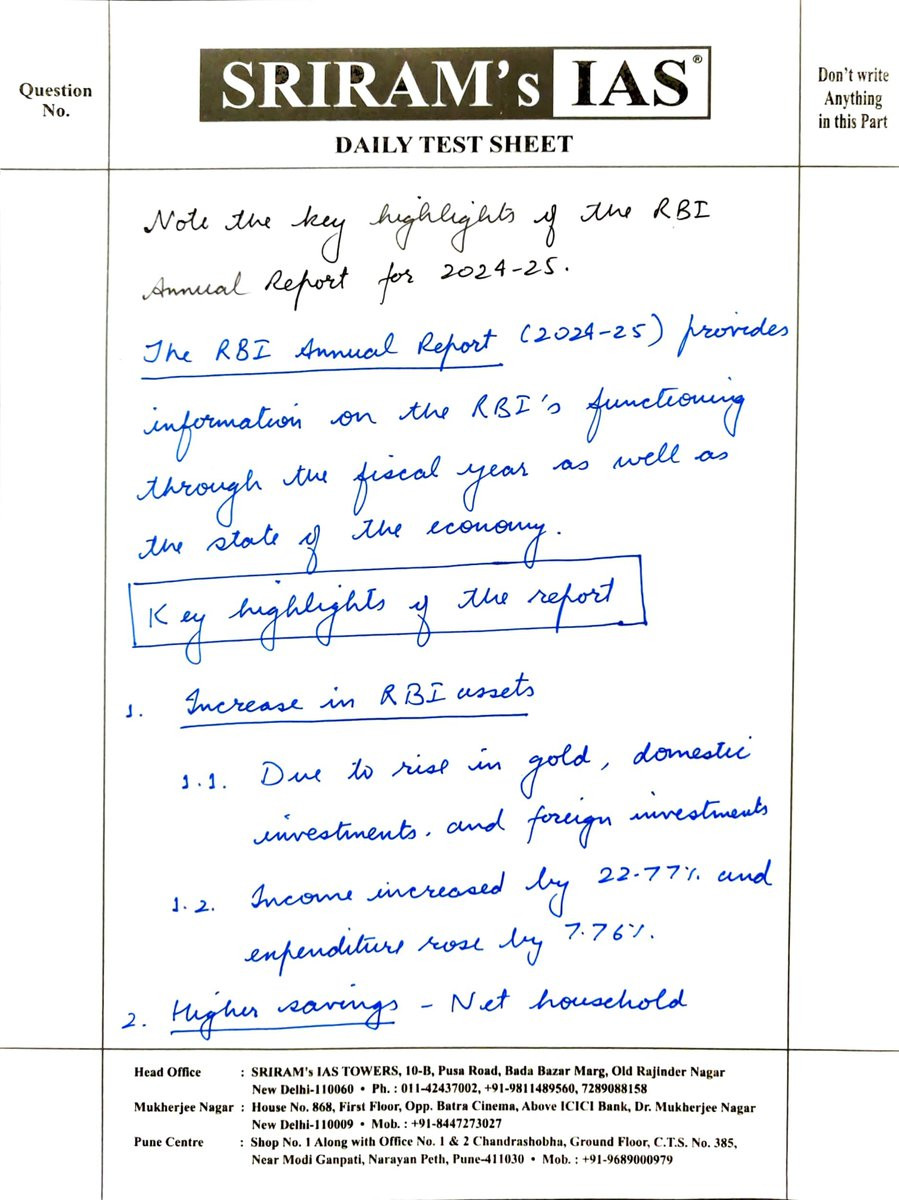 Question
No.
SRIRAM's IAS®
DAILY TEST SHEET
Don't write
Anything
in this Part
Note the key highlights of the RBI
Annual Report for 2024-25.
The RBI Annual Report (2024-25) provides
information on the RBI's functioning
through the fiscal year as well as
the state of the economy.
Key highlights of the report
1. Increase in RBI assets
1.1. Due to rise in gold, domestic
investments. and foreign investments
1.2. Income increased by 22.77% and
expenditure rose by 7.76%.
2. Higher savings - Net household
Head Office : SRIRAM's IAS TOWERS, 10-B, Pusa Road, Bada Bazar Marg, Old Rajinder Nagar
New Delhi-110060 • Ph. : 011-42437002, +91-9811489560, 7289088158
Mukherjee Nagar : House No. 868, First Floor, Opp. Batra Cinema, Above ICICI Bank, Dr. Mukherjee Nagar
New Delhi-110009 • Mob. : +91-8447273027
Pune Centre : Shop No. 1 Along with Office No. 1 & 2 Chandrashobha, Ground Floor, C.T.S. No. 385,
Near Modi Ganpati, Narayan Peth, Pune-411030 • Mob. : +91-9689000979